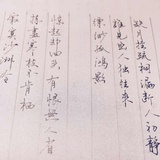 缺月挂疏桐漏断人初静
誰見幽人独往来
缥缈孤鸿影
惊起却回头有恨無人省
揀盡寒枝不肯栖
寂寞沙洲冷